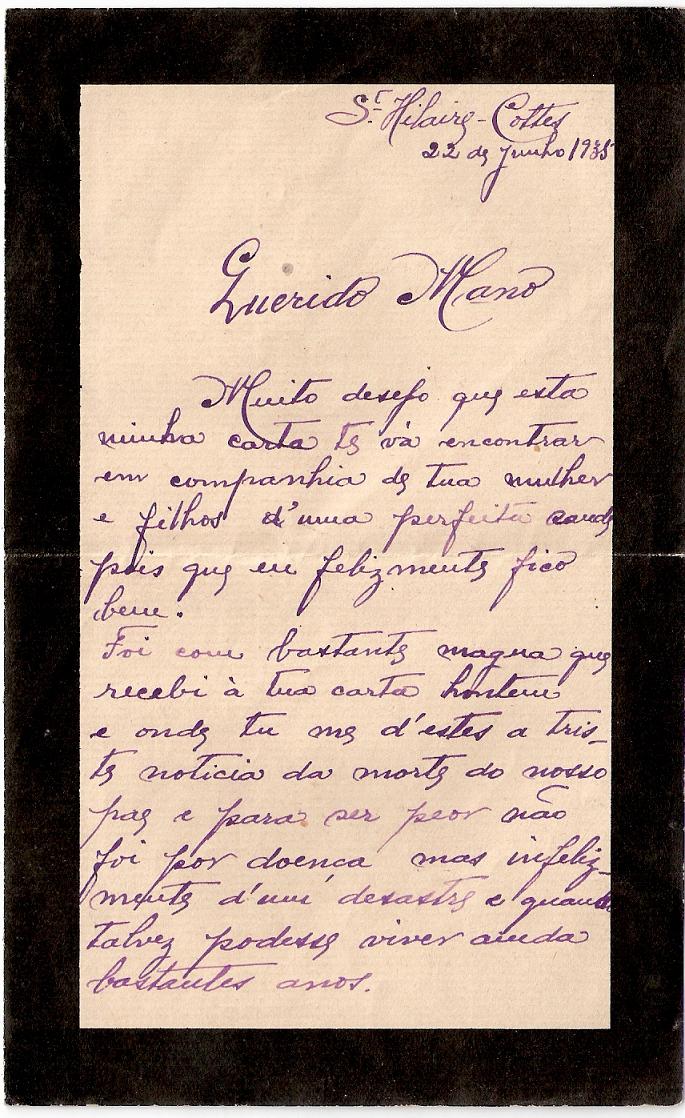 St Hilaire-Cottes
22 de Junho 1935
Querido Mano
Muito desejo que esta
minha carta te vá encontrar
em companhia de tua mulher
e filhos d'uma perfeita saude
pois que eu felizmente fico
bem.
Foi com bastante magua que
recebi à tua carta hontem
e onde tu me d'estes a tris-
te noticia da morte do nosso
pae e para ser peor não
foi por doenca mas infeliz-
mente d'um desastre e quando
talvez podesse viver ainda
bastantes anos.